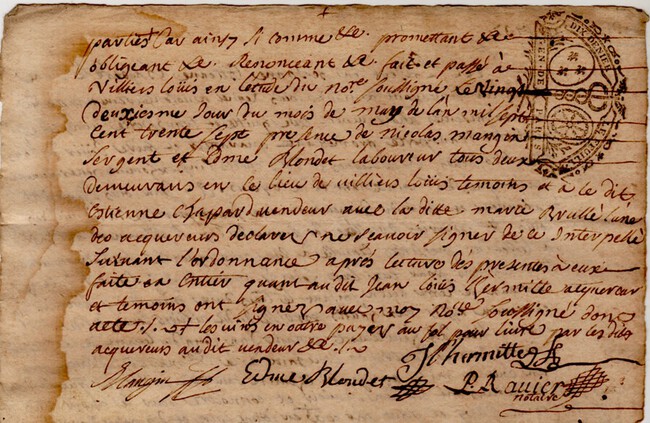 parties Car ainsy Si comme &c. promettant &c
obligeant &c. Renonceant &c fait et passé à
Villiers Loüis en Lectude du no.re soussigné Le Vingt
deuxiesme Jour du mois de may de Lan mil sept
Cent trente sept presence de nicolas mangin
Sergent et Edme Blondot laboureur tous deux
demeurans en Le lieu de villiers Loüis temoins et a le dit
Estienne Chapard vendeur avec la ditte marie Brullé lune
des acquereurs declarez ne scavoir signer de ce Interpellé
Suivant l'ordonnance après lecture des presentes à eux
faite en Entier quant audit Jean Loüis Lhermitte acquereur
et temoins ont signez avec moy no.re soussigné dont
acte ./. et les vins en outre payez au sol pour livre par les dits
acquereurs audit vendeur &c ./.
JLhermitte
Mangin Edme Blondot P. Ravier
notaire
DIX DENIERS